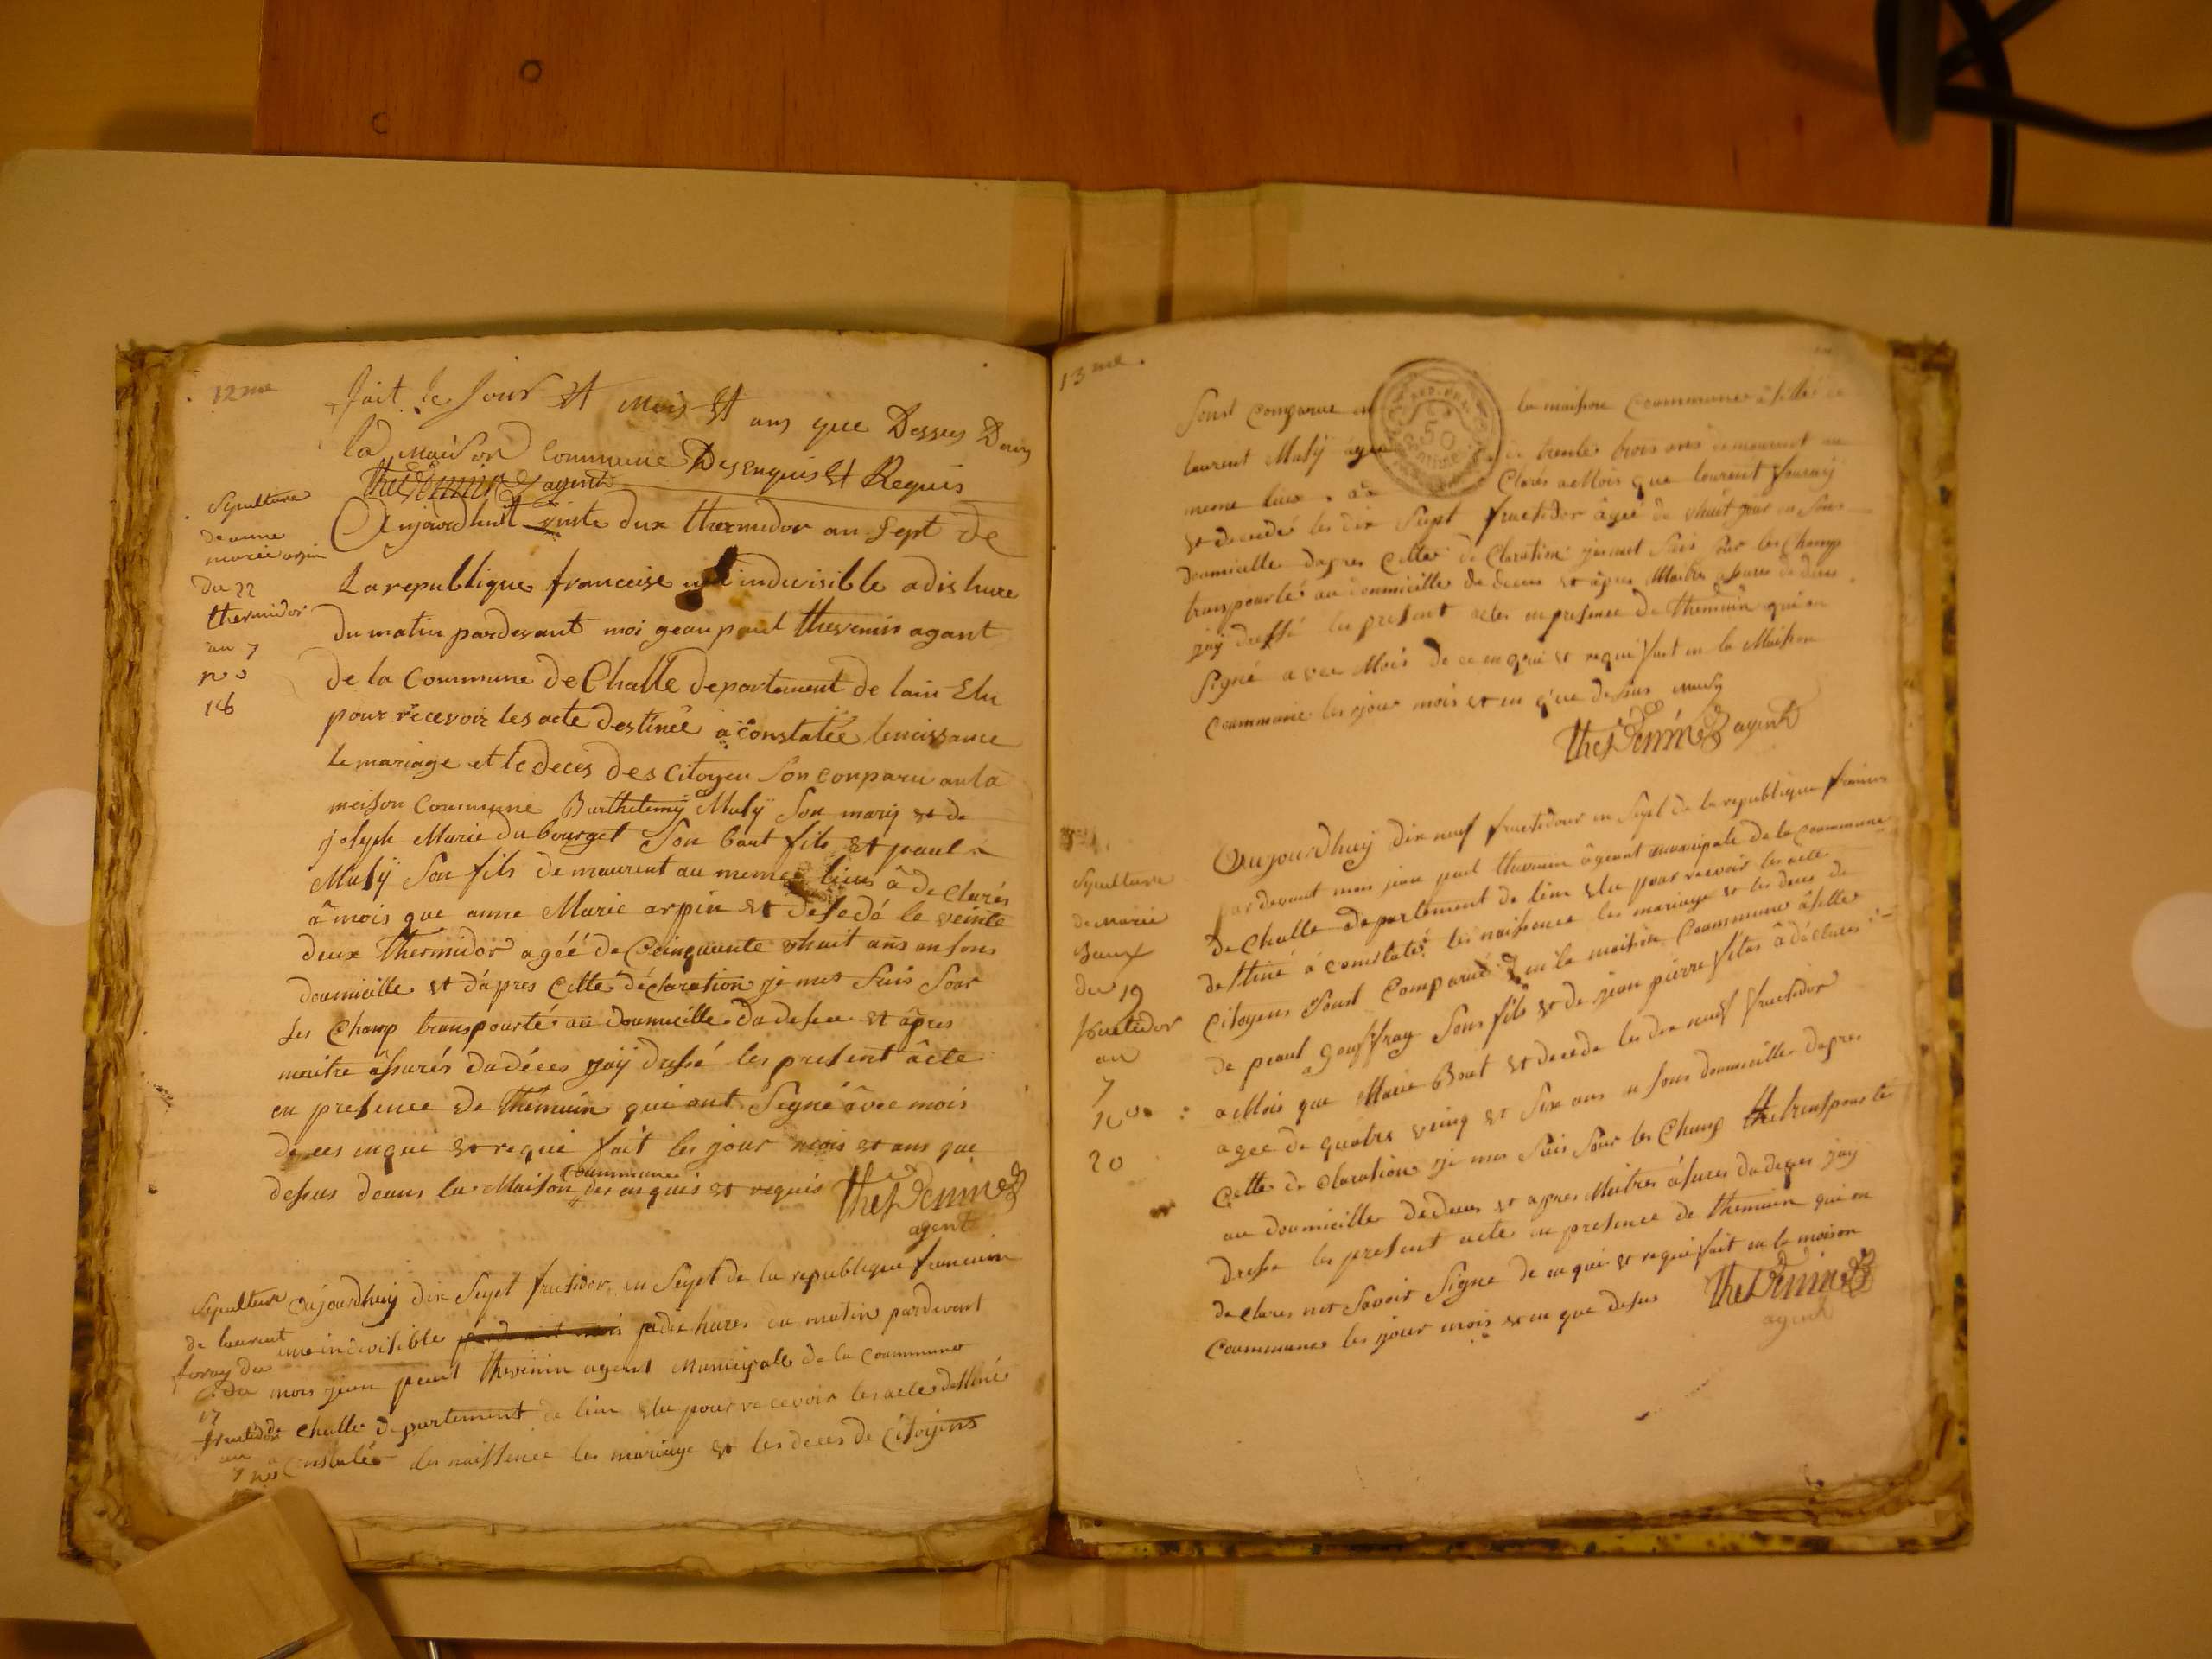 12me
fait le Jour et mois et ans que Dessus Dans
la maison commune Des enquis et Requis
Thevenin agent
Sepulture
de anne
marie arpin
du 22
thermidor
an 7
no
18
Aujourdhuit vinte dux thermidor an sept de
La republique francaise une indivisible a dis hure
du matin pardevant moi gean paul thevenin agant
de la commune de Challe departement de lain Elu
pour recevoir les acte destinée a constatée lenaissance
le mariage et le deces des citoyen son conparu an la
meison commune Barthelemy Musy son mary et de
joseph Marie du bourget son baut fils et paul
Musy son fils demaurent au meme lieus â de clarés
â mois que anne Marie arpin et desedé le veinte
deux thermidor agéé de Ceinquante vhuit ans en sons
doumicille et dápres cette déclaration je mes suis sour
les Champ transpourté au doumicille du deseu et âpres
maitre âsurés du déces jäy dressé les present âcte
en presence de themuin qui ont Segné âvec mois
de ces inqui et requi fait les jour mois et ans que
desus deans la Maison coummune des enquis et requis Thevenin
agent
Sepulture
de laurent
foray du
17
fructidor
an
7 no
aujourdhuy dix Sept frutidor en Sept de la republique francain
une indivisible a dix hures du matin pardevent
mois jean paul thevenin agent Municipale de la Coummune
de Challe departement de lain elu pour recevoir les acte destiné
a Constatés les naissence les mariage et les deces de Citoyens
13me.
Sont Comparue en la maison Coummune
laurent Musÿ agée de trente trois ans demeurent au
meme lieux â dé Clarés a Mois que laurent fouray
et decedé les dix Sept fructidor âgeé de vhuit jour en sons
doumicille dapres Cette de Claration jemet suis sour les Champ
transpourtés au doumicille de deces et âpres Maitre asures de deces
jaÿ dressé les present actes en presence de themuin qui
Signé avec Mois de ce en qui et requi fait en la Maison
Coummune les jour mois et en que desus musy
Thevenin agent
Sepulture
de Marie
Baux
du 19
fructidor
an
7
no
20
Aujourdhuy dix neuf fructidour en Sept de la republique
pardevant mois jean paul thevenin âgeant municipale de la Coummune
de Challe departement de lein elu pour recevoir les acte
destiné â constatés les naissence les mariage et les deces de
Citoyens Sont Comparué en la maison Coummune
de peaul gouffray Sons fils et de jean pierre â déclares
a Mois que Marie Bout et decede les dix neuf fructidor
agee de quatre veing et Six ans en sons doumicille dapres
Cette de Claration je mes suis sour les Champ transpourte
au doumicille de deces et apres Maitres âsures du deces jay
dresse les present acte en presence de themuin qui on
declares net Savoir Signe de en qui et requi fait en la maison
Coummune les jour mois et en que desus Thevenin
agent